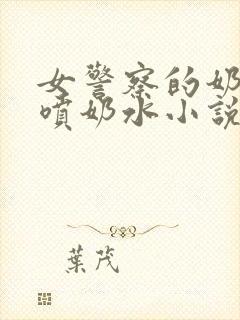 女警察的奶
噴奶水小說
葉茂